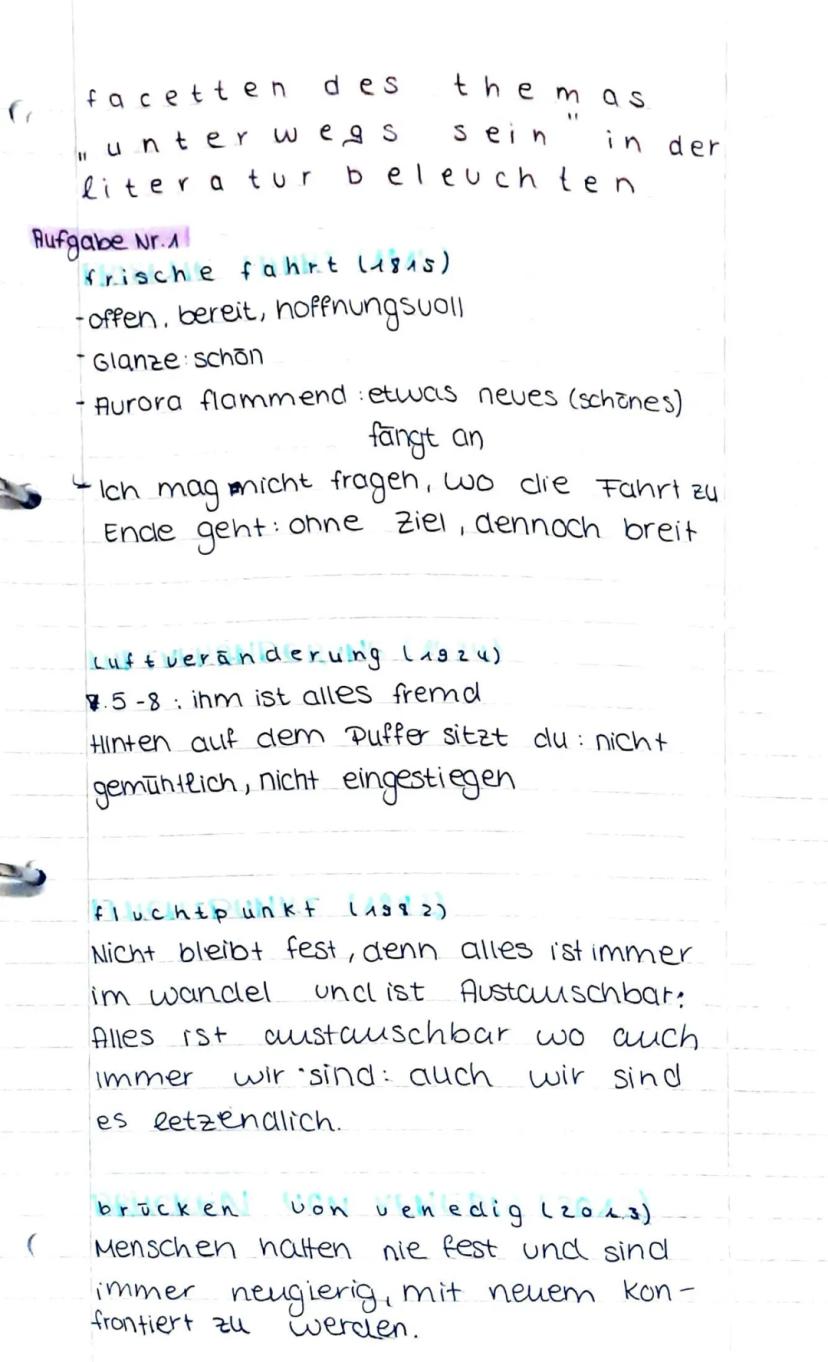 facetten des themas
„unterwegs sein" in der
literatur beleuchten
Aufgabe Nr.1
frische fahrt (1815)
-offen, bereit, hoffnungsvoll
- Glanze: schön
- Aurora flammend : etwas neues (schönes)
fängt an
Ich mag nicht fragen, wo die Fahrt zu
Ende geht: ohne Ziel, dennoch breit
Luftveränderung (1924)
V.5-8 : ihm ist alles fremd
Hinten auf dem Puffer sitzt du : nicht
gemühtlich, nicht eingestiegen
fluchtpunkt (1982)
Nicht bleibt fest, denn alles ist immer
im wandel und ist Austauschbar:
Alles ist austauschbar wo auch
immer wir sind: auch wir sind
es letzendlich.
brücken von venedig (2013)
Menschen halten nie fest und sind
immer neugierig, mit neuem kon-
frontiert zu werden.